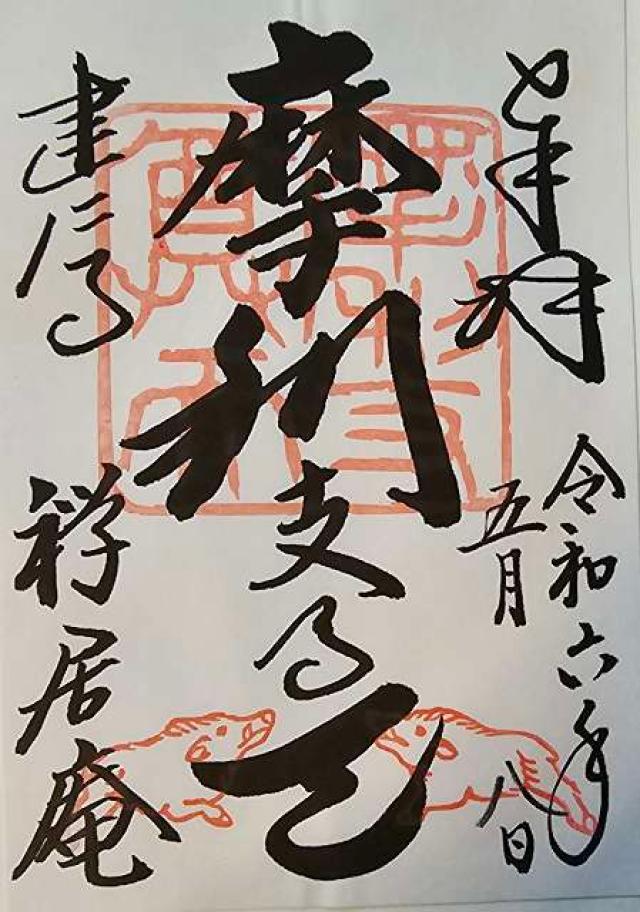 奉拝
令和六年
五月八日
摩利支尊天
建仁寺
禅居庵